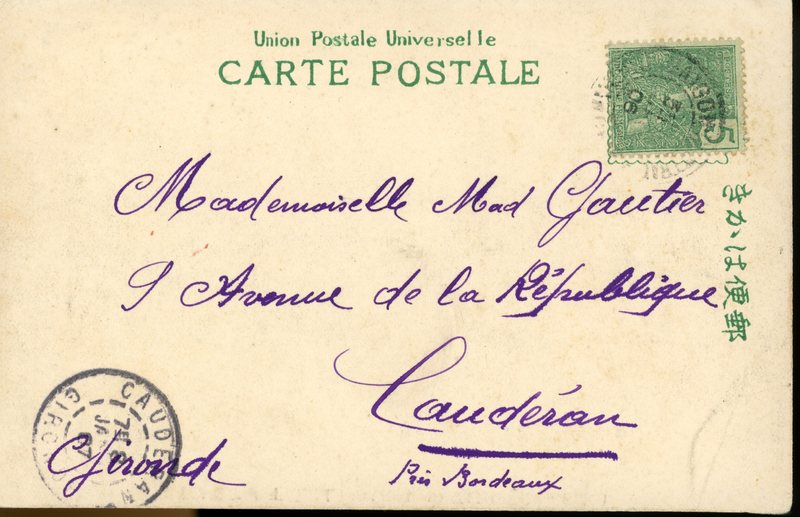 Union Postale Universelle
CARTE POSTALE
5
きかは便郵
Mademoiselle Mad Gautier
9 Avenue de la République
Caudéran
Près Bordeaux
Gironde
CAUDERAN
GIRO
07